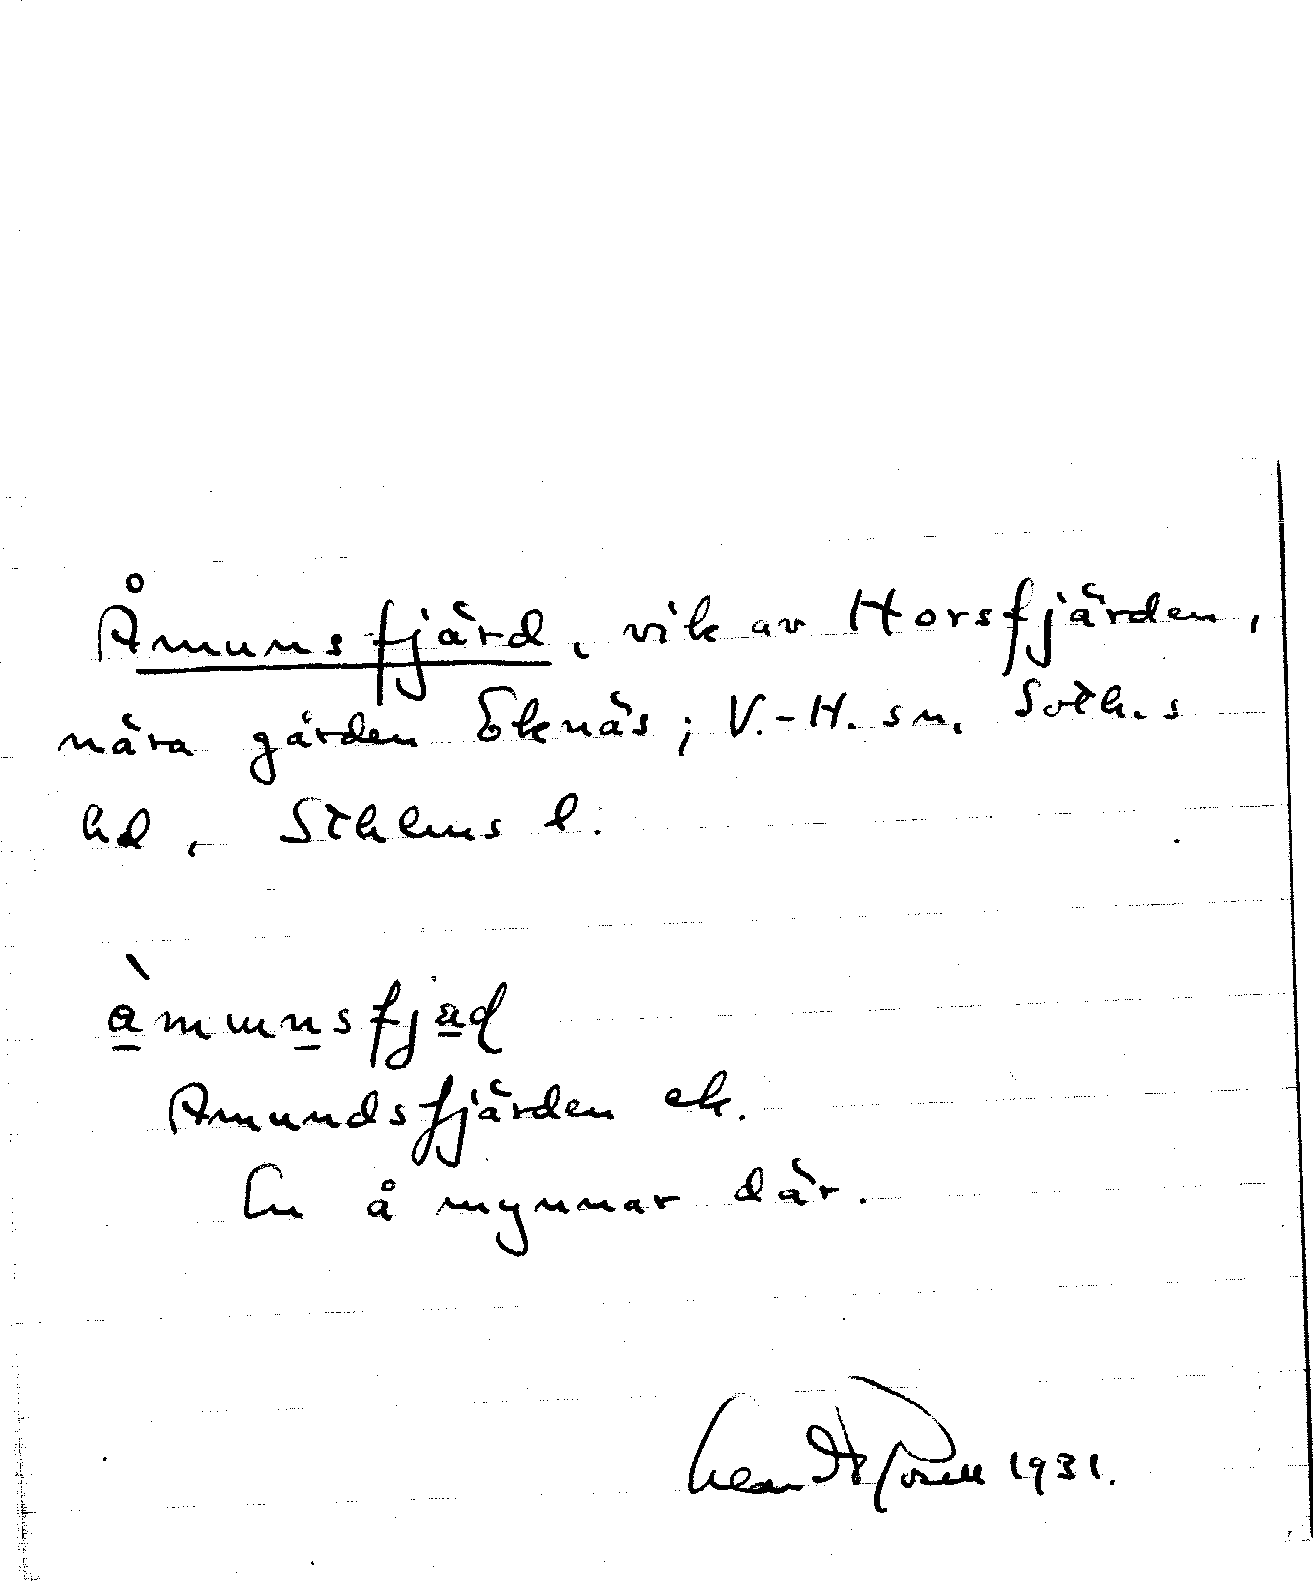 Åmunsfjärd, vik av Horsfjärden,
nära gården Eknäs; V.-H. sn. Soth.s
hd, Sthlms l.
àmmunsfjad
Amundsfjärden ek.
En å mynnar där.
1931.